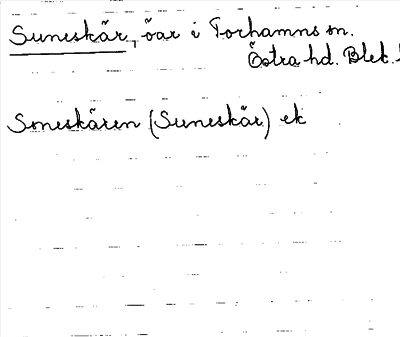 Suneskär, öar i Torhamns sn.
Östra hd. Blek.
Soneskären (Suneskär) ek